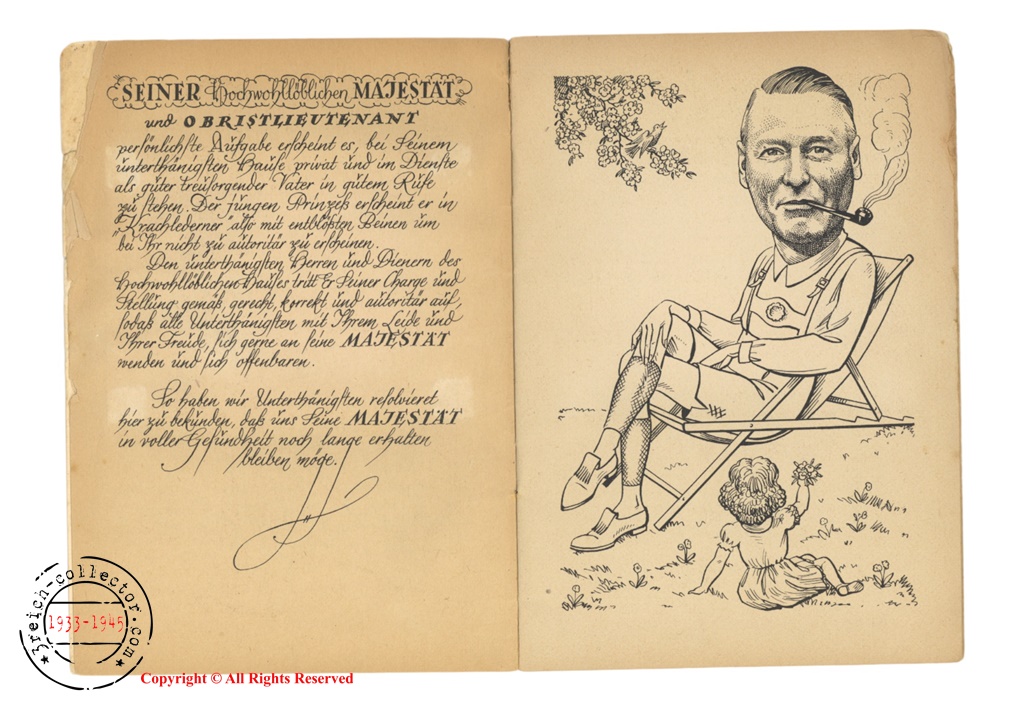 SEINER Hochwohllöblichen MAJESTÄT
und OBRISTLIEUTENANT
persönlichste Aufgabe erscheint es, bei Seinem
unterthänigsten Hause privat und im Dienste
als guter treusorgender Vater in gutem Rufe
zu stehen. Der jungen Prinzeß erscheint er in
"Krachlederner" also mit entblößten Beinen um
bei Ihr nicht zu autoritär zu erscheinen.
Den unterthänigsten Herren und Dienern des
Hochwohllöblichen Hauses tritt Er Seiner Charge und
Stellung gemäß, gerecht, korrekt und autoritär auf,
sodaß alle Unterthänigsten mit Ihrem Leide und
Ihrer Freude, sich gerne an seine MAJESTÄT
wenden und sich offenbaren.
So haben wir Unterthänigsten resolvieret
hier zu bekunden, daß uns Seine MAJESTÄT
in voller Gesundheit noch lange erhalten
bleiben möge.
3reich-collector.com
1933-1945
Copyright © All Rights Reserved